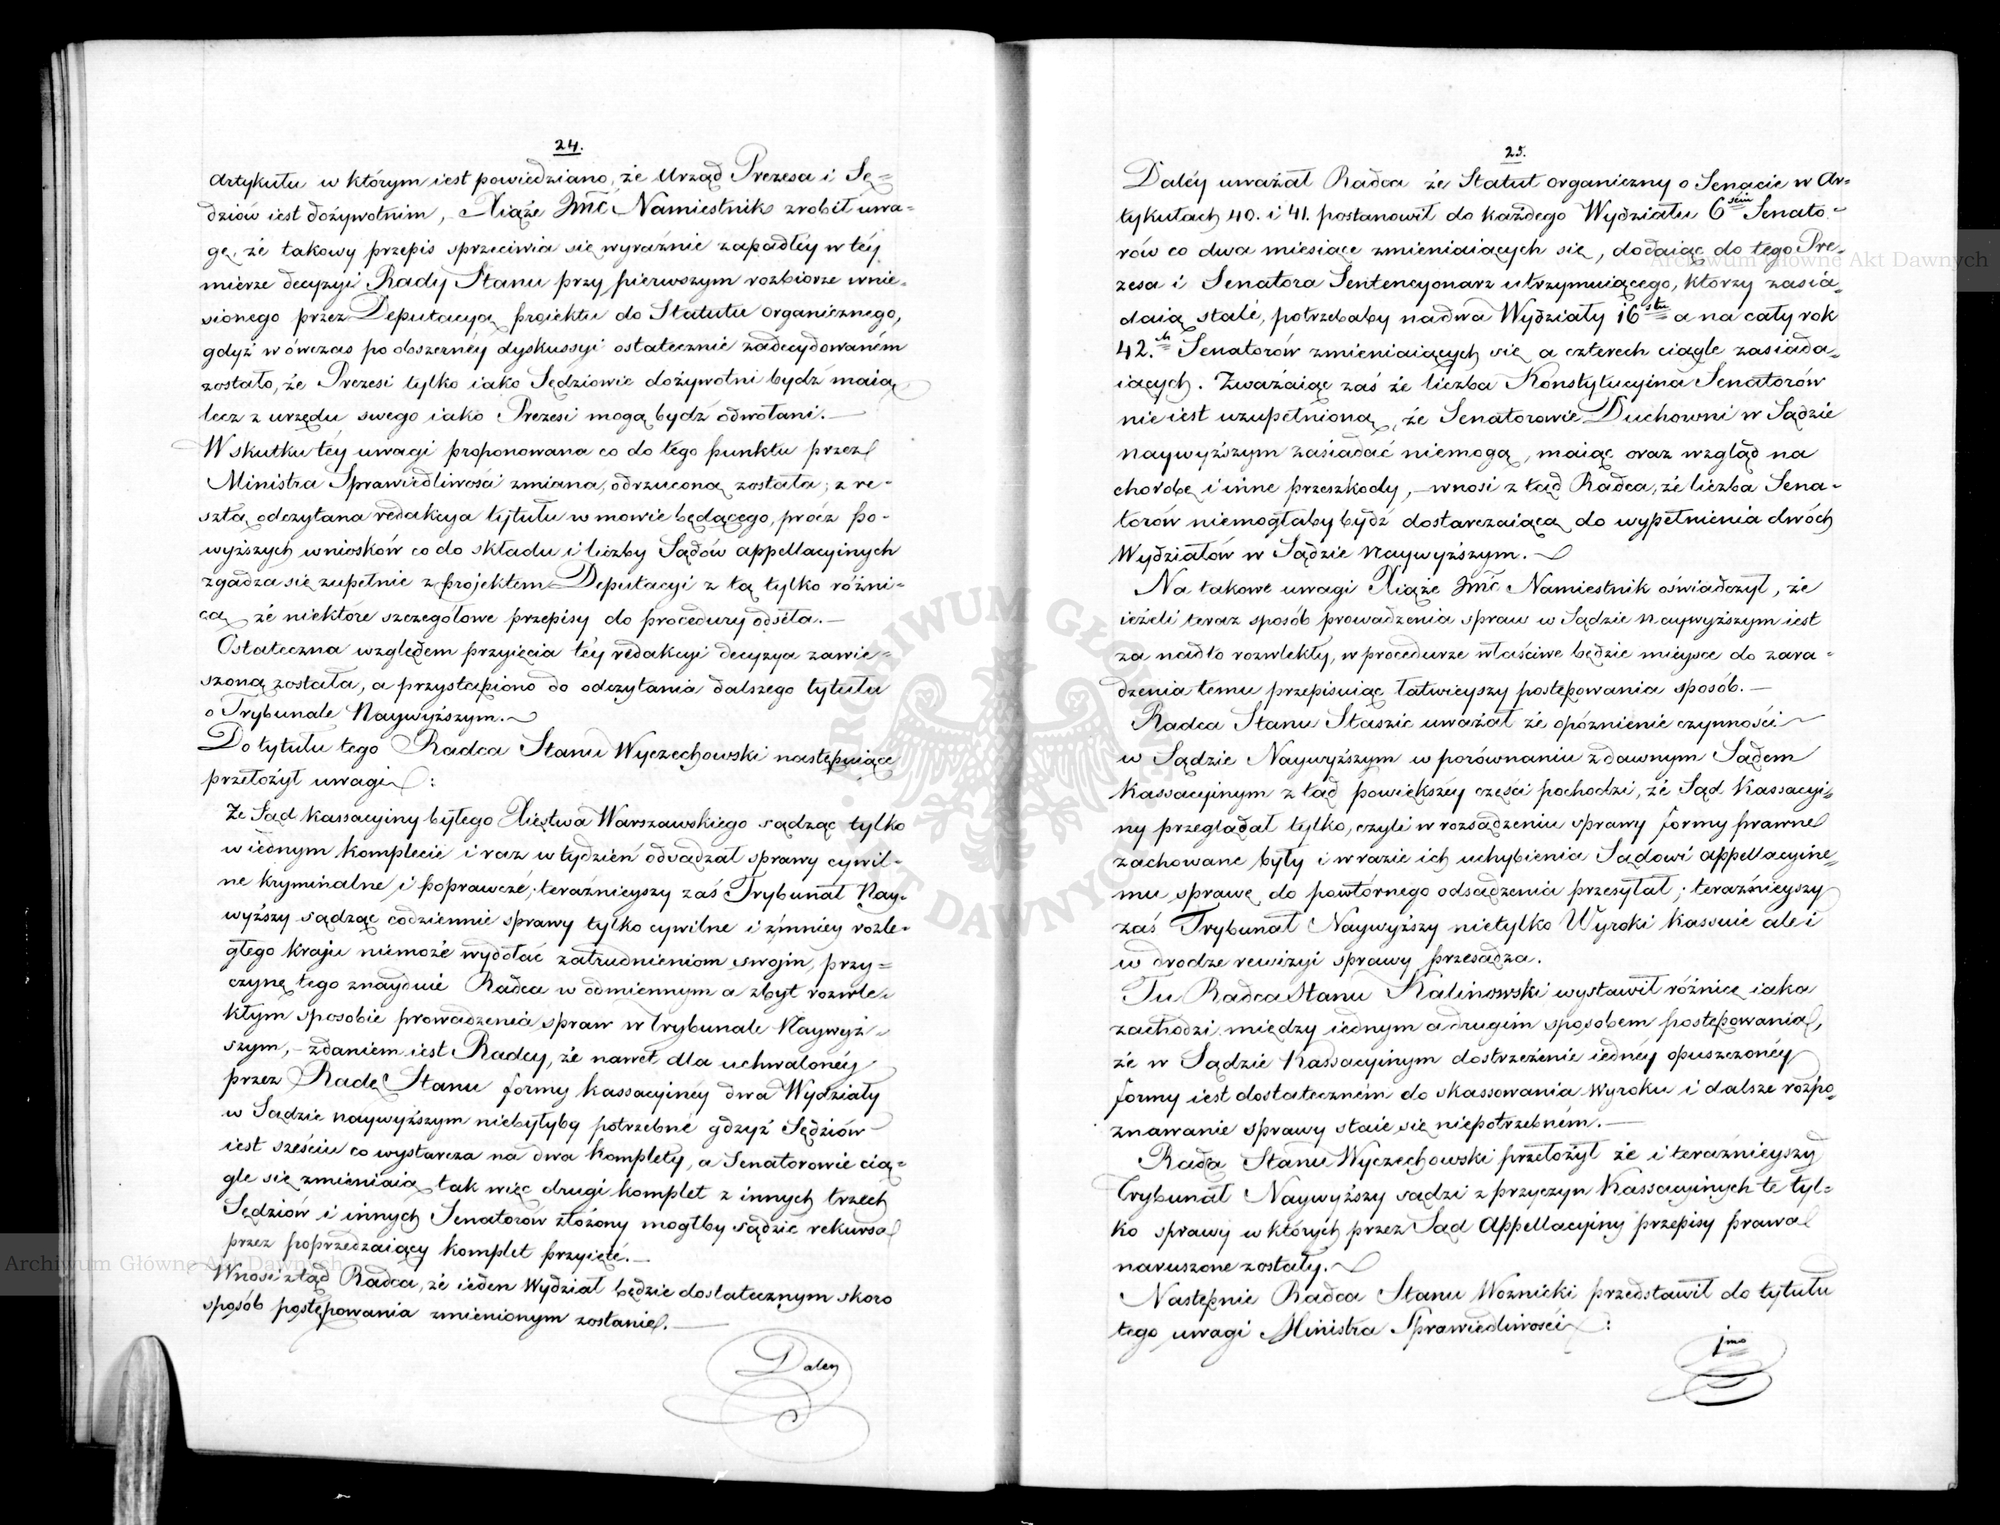 24.
Artykułu w którym iest powiedziano, że Urząd Prezesa i Sę=
dziów iest dożywotnim, Xiąże Jmć Namiestnik zrobił uwa-
gę, że takowy przepis sprzeciwia się wyraźnie zapadłéy w téy
mierze decyzyi Rady Stanu przy pierwszym rozbiorze wnie-
sionego przez Deputacyą projektu do Statutu organicznego,
gdyż wówczas po obszernéy dyskussyi ostatecznie zadecydowaném
zostało, że Prezesi tylko iako Sędziowie dożywotni bydź maią
lecz z urzędu swego iako Prezesi mogą bydź odwołani. —
W skutku téy uwagi proponowana co do tego punktu przez
Ministra Sprawiedliwości zmiana, odrzuconą została; z re-
sztą odczytana redakcya tytułu w mowie będącego, prócz po-
wyższych wniosków co do składu i liczby Sądów appellacyinych
zgadza się zupełnie z projektem Deputacyi z tą tylko różni-
cą że niektóre szczegółowe przepisy do procedury odséła. —
Ostateczna względem przyięcia téy redakcyi decyzya zawie-
szoną została, a przystąpiono do odczytania dalszego tytułu
o Trybunale Naywyższym.
Do tytułu tego Radca Stanu Wyczechowski następuiące
przełożył uwagi:
Że Sąd Kassacyiny byłego Xięstwa Warszawskiego sądząc tylko
w iednym komplecie i raz w tydzień odsądzał sprawy cywil-
ne kryminalne i poprawczé; teraźnieyszy zaś Trybunał Nay-
wyższy sądząc codziennie sprawy tylko cywilne i z mniéy rozle-
głego kraju niemoże wydołać zatrudnieniom swojm, przy=
czynę tego znayduie Radca w odmiennym a zbyt rozwle-
kłym sposobie prowadzenia spraw w Trybunale Naywyż-
szym, – zdaniem iest Radcy, że nawet dla uchwalonéy
przez Radę Stanu formy kassacyinéy dwa Wydziały
w Sądzie naywyższym niebyłyby potrzebné gdyż Sędziów
iest sześciu co wystarcza na dwa komplety, a Senatorowie cią-
gle się zmieniaią tak więc drugi komplet z innych trzech
Sędziów i innych Senatorów złożony mógłby sądzić rekursa
przez poprzedzaiący komplet przyięté. —
Wnosi ztąd Radca, że ieden Wydział będzie dostatecznym skoro
sposób postępowania zmienionym zostanie. —
Daléy
25.
Daléy uważał Radca że Statut organiczny o Senacie w Ar-
tykułach 40. i 41. postanowił do każdego Wydziału 6ściu Senato-
rów co dwa miesiące zmieniaiących się, dodaiąc do tego Pre-
zesa i Senatora Sentencyonarz utrzymuiącego, którzy zasia-
daią stale, potrzebaby na dwa Wydziały 16stu a na cały rok
42.ch Senatorów zmieniaiących się a czterech ciągle zasiada-
iących. Zważaiąc zaś że liczba Konstytucyina Senatorów
nie iest uzupełnioną, że Senatorowie Duchowni w Sądzie
naywyższym zasiadać niemogą, maiąc oraz wzgląd na
chorobę i inne przeszkody, – wnosi ztąd Radca, że liczba Sena-
torów niemogłaby bydź dostarczaiącą do wypełnienia dwóch
Wydziałów w Sądzie naywyższym.
Na takowe uwagi Xiąże Jmć Namiestnik oświadczył, że
ieżeli teraz sposób prowadzenia spraw w Sądzie naywyższym iest
za nadto rozwlekły, w procedurze właściwe będzie mieysce do zara-
dzenia temu przepisuiąc łatwieyszy postępowania sposób. —
Radca Stanu Staszic uważał że opóźnienie czynności
w Sądzie Naywyższym w porównaniu z dawnym Sądem
Kassacyinym ztąd powiększéy części pochodzi, że Sąd Kassacyi-
ny przeglądał tylko, czyli w rozsądzeniu sprawy formy prawne
zachowane były i w razie ich uchybienia Sądowi appellacyine-
mu sprawę do powtórnego odsądzenia przesyłał; teraźnieyszy
zaś Trybunał Naywyższy nietylko Wyroki kassuie ale i
w drodze rewizyi sprawy przesądza.
Tu Radca Stanu Kalinowski wystawił różnicę iaka
zachodzi między iednym a drugim sposobem postępowania,
że w Sądzie Kassacyinym dostrzeżenie iednéy opuszczonéy
formy iest dostateczném do skassowania wyroku i dalsze rozpo-
znawanie sprawy staie się niepotrzebném. —
Radca Stanu Wyczechowski przełożył że i teraźnieyszy
Trybunał Naywyższy sądzi z przyczyn Kassacyinych te tyl-
ko sprawy w których przez Sąd Appellacyiny przepisy prawa
naruszone zostały.
Następnie Radca Stanu Woźnicki przedstawił do tytułu
tego uwagi Ministra Sprawiedliwości:
1mo